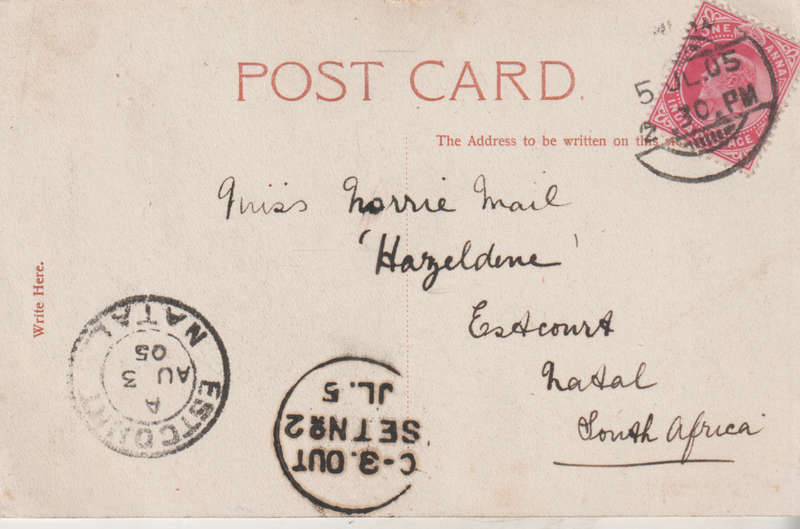 POST CARD.
ONE ANNA
5 JL. 05
2. 30. PM
The Address to be written on this
Miss Norrie Mail
'Hazeldene'
Estcourt
Natal
South Africa
Write Here.
ESTCOURT NATAL
A
AU 3
05
C-3. OUT
SET No 2
JL. 5